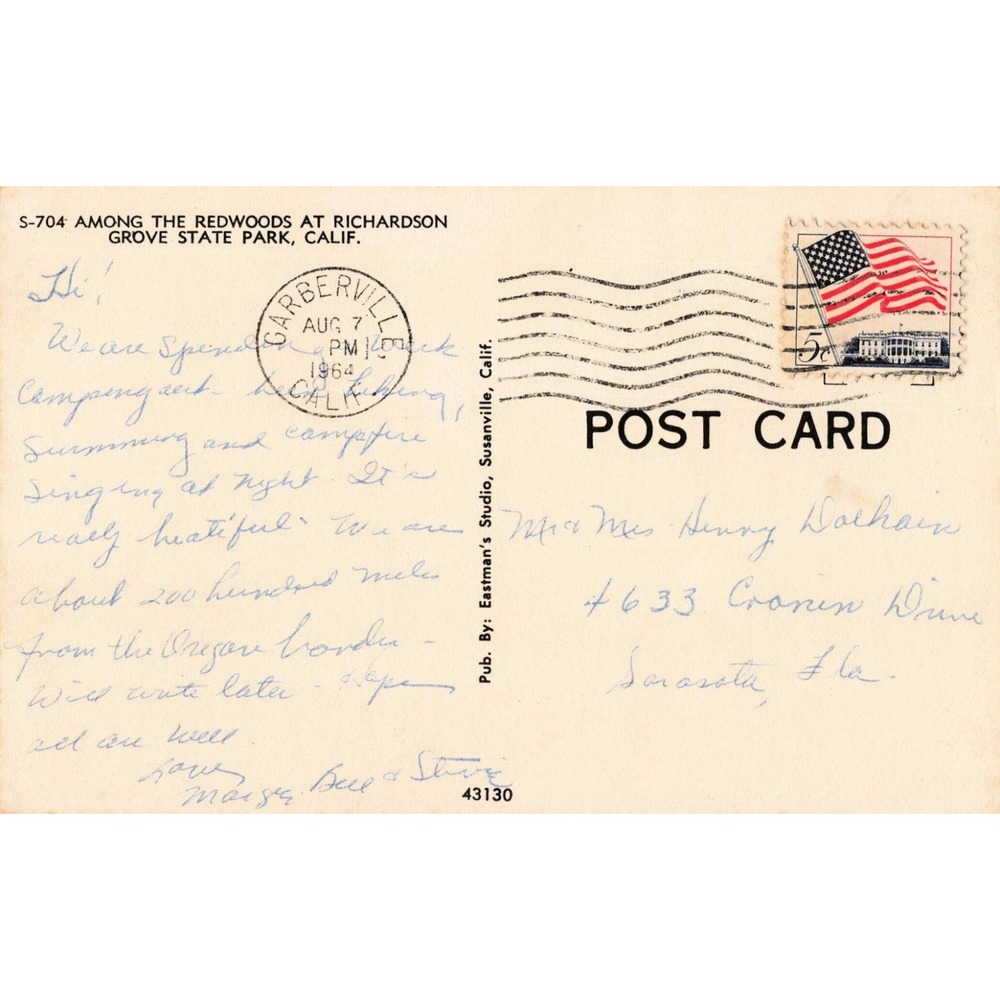 S-704 AMONG THE REDWOODS AT RICHARDSON
GROVE STATE PARK, CALIF.
Hi!
We are Spending a week
Camping out - been hiking,
Swimming and campfire
Singing at night. It's
really beatiful. We are
about 200 hundred miles
from the Oregon border -
Will write later - Hope
all are well.
Love,
Margy, Bill & Stevie
GARBERVILLE
AUG 7
PM
1964
CALIF.
5c
POST CARD
Mr & Mrs Henry
4633 Cronin Drive
Sarasota, Fla.
Pub. By: Eastman's Studio, Susanville, Calif.
43130